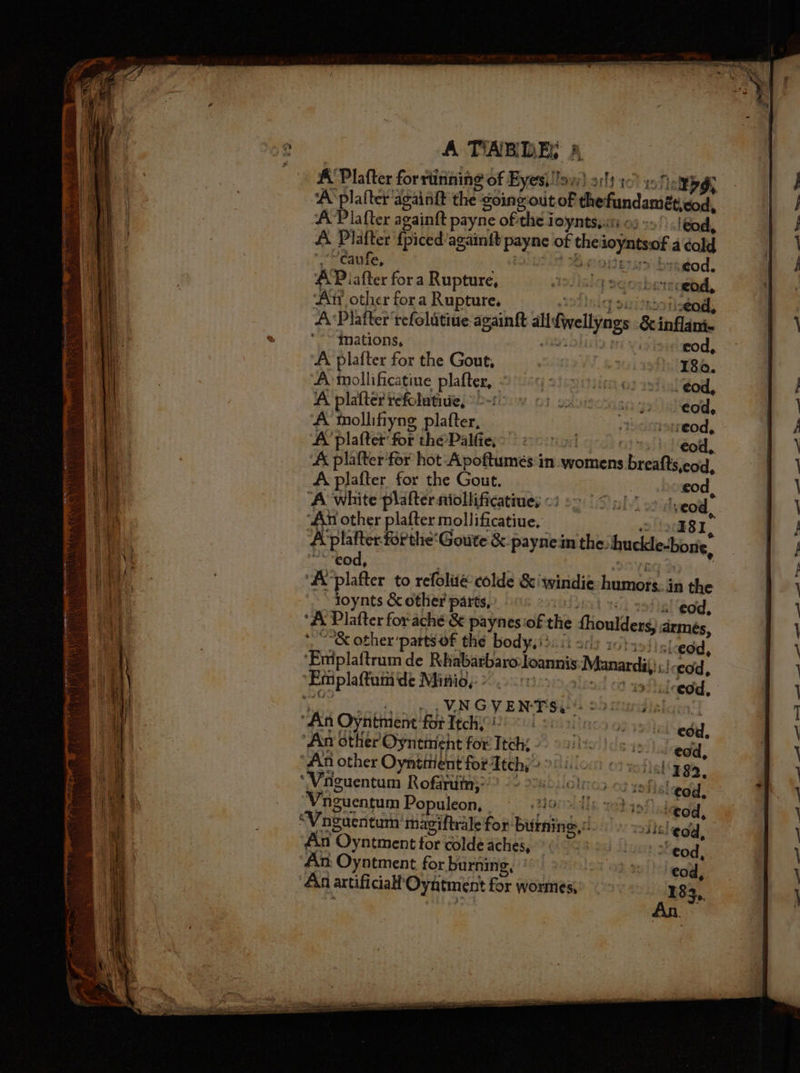 A TABLE.
A Plaſter for rūnning of Eyes,
A plaſter againſt the going out of thefundamēt, eod,
A Plaſter againſt payne of the ioynts, eod,
A Plaſter ſpiced againſt payne of the ioynts of a cold
cauſe, eod.
A Plaſter for a Rupture, eod,
An other for a Rupture. eod,
A Plaſter reſolutiue againſt all ſwellyngs & inflam-
mations, eod,
A plaſter for the Gout, 180.
A mollificatiue plaſter, eod,
A plaſter reſolutiue, eod,
A mollifiyng plaſter, eod,
A plaſter for the Palſie, eod,
A plaſter for hot Apoſtumes in womens breaſts, eod,
A plaſter for the Gout. eod,
A white plaſter mollificatiue, eod,
An other plaſter mollificatiue, 181,
A plaſter for the Goute & payne in the huckle-bone,
eod,
A plaſter to reſolue colde & windie humors in the
ioynts & other parts, eod,
A Plaſter for ache & paynes of the ſhoulders, armes,
& other parts of the body, eod,
Emplaſtrum de Rhabarbaro Ioannis Manardi, eod,
Emplaſtum de Minio, eod,
VNGVENTS.
An Oyntment for Itch, eod,
An other Oyntment for Itch, eod,
An other Oyntment for Itch, 182,
Vnguentum Roſarum, eod,
Vnguentum Populeon, eod,
Vnguentum magiſtrale for burning, eod,
An Oyntment for colde aches, eod,
An Oyntment for burning, eod,
An artificiall Oyntment for wormes, 183,
An